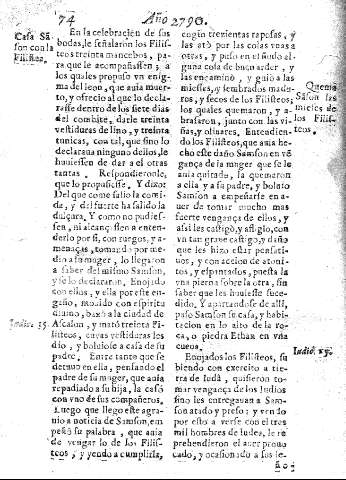 74
Año 2790.
Casa Sã-
son con la
Filistea.
En la celebracion de sus
bodas, le señalaron los Filis-
teos treinta mancebos, pa-
ra que le acompañassen; a
los quales propuso vn enig-
ma del leon, que auia muer-
to, y ofrecio al que lo decla-
rasse dentro de los siete dias
del combite, darle treinta
vestiduras de lino, y treinta
tunicas, con tal, que sino lo
declaraua ninguno dellos, le
huuiessen de dar a el otras
tantas. Respondieronle,
que lo propusiesse. Y dixo:
Del que come salio la comi-
da, y del fuerte ha salido la
dulçura. Y como no pudies-
sen, ni alcançassen a enten-
derlo por si, con ruegos, y a-
menaças, tomando por me-
dio a su muger, lo llegaron
a saber del mismo Samson,
y se lo declararan. Enojado
con ellos, y ella por este en-
gaño, mouido con espiritu
diuino, baxò a la ciudad de
Iudic. 15.
Ascalon, y matò treinta Filis-
teos, cuyas vestiduras les
dio, y boluiose a casa de su
padre. Entre tanto que se
detuuo en ella, pensando el
padre de su muger, que auia
repudiado a su hija, la casò
con vno de sus compañeros.
Luego que llego este agra-
uio a noticia de Samson, em-
peñò su palabra, que auia
de vengar lo de los Filis-
teos; y yendo a cumplirla,
cogio trezientas raposas, y
las atò por las colas vnas a
otras, y puso en el ñudo al-
guna cosa de buen arder, y
las encaminò, y guiò a las
miesses, y sembrados madu-
ros, y secos de los Filisteos;
los quales quemaron, y a-
brasaron, junto con las vi-
ñas, y oliuares. Entendien-
do los Filisteos, que auia he-
cho este daño Samson en vẽ-
gança de la muger que se le
auia quitado, la quemaron
a ella y a su padre, y boluio
Samson a empeñarse en a-
uer de tomar mucho mas
fuerte vengança de ellos, y
assi les castigò, y afligio, con
vn tan graue castigo, y daño
que les hizo estar pensati-
uos, y con accion de atoni-
tos, y espantados, puesta la
vna pierna sobre la otra, sin
saber que les huuiesse suce-
dido. Y apartandose de alli,
paso Samson su casa, y habi-
tacion en lo alto de la ro-
ca, o piedra Etham en vna
cueua.
Quema
Sãson las
mieses de
los Filis-
teos.
Enojados los Filisteos, su
biendo con exercito a tie-
rra de Iudà, quisieron to-
mar vengança de los Iudios
sino les entregauan a Sam-
son atado y preso; y vendo
por esto a verse con el tres
mil hombres de Iudea, le re
prehendieron el auer prouo
cado, y ocasionado a sus se-
ño-